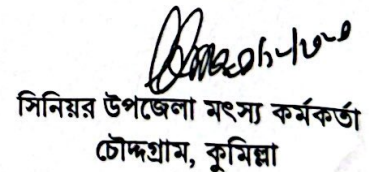 সিনিয়র উপজেলা মৎস্য কর্মকর্তা
চৌদ্দগ্রাম, কুমিল্লা